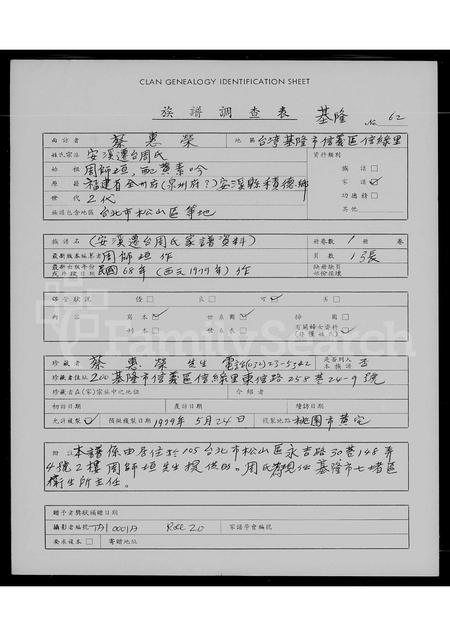 CLAN GENEALOGY IDENTIFICATION SHEET
族譜調查表 基隆 No 62
面訪者 蔡惠榮 地區 台灣基隆市信義區信綠里
姓氏宗派 安溪遷台周氏 資料類別
始祖 周師垣，配黃素吟 族譜
原籍 福建省全州府(泉州府？)安溪縣積德鄉 家譜
世代 2代 功德榜
族譜包含地區 台北市松山區等地 其他
族譜名 (安溪遷台周氏家譜資料) 冊卷數 1 冊 卷
最新版本編纂者 周師垣作 頁數 1張
民國68年 (西元1979年)作 缺冊缺頁
保管狀況 優 良 可 差
內容 寫本 世系圖 掃圖
刊本 世系表
FamilySearch
珍藏者 蔡惠榮先生 電話(032)23-5342 是否列入本族譜 否
珍藏者住址 200基隆市信義區信綠里東信路258巷24-9號
珍藏者在(家)宗族中之地位 介紹者
初訪日期 複訪日期 續訪日期
允許複製 預擬複製日期 1979年5月24日 複製地點 桃園市黃宅
附記 本譜係由居住於105台北市松山區永吉路30巷148弄
4號2樓周師垣先生提供的。周氏為現任基隆市七堵區
衛生所主任。
贈予者獎狀補贈日期
攝影者編號 TAI 0001A Roll 20 家譜學會編號
要求複本 寄贈地址